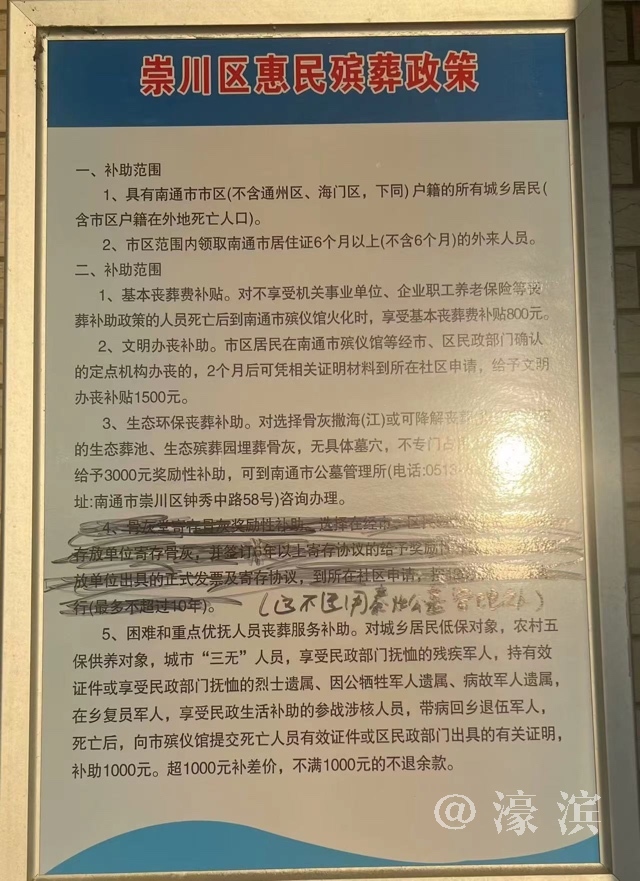 崇川区惠民殡葬政策
一、补助范围
1、具有南通市市区(不含通州区、海门区，下同)户籍的所有城乡居民(
含市区户籍在外地死亡人口)。
2、市区范围内领取南通市居住证6个月以上(不含6个月)的外来人员。
二、补助范围
1、基本丧葬费补贴。对不享受机关事业单位、企业职工养老保险等丧
葬补助政策的人员死亡后到南通市殡仪馆火化时，享受基本丧葬费补贴800元。
2、文明办丧补助。市区居民在南通市殡仪馆等经市、区民政部门确认
的定点机构办丧的，2个月后可凭相关证明材料到所在社区申请，给予文明
办丧补贴1500元。
3、生态环保丧葬补助。对选择骨灰撒海(江)或可降解
的生态葬池、生态殡葬园埋葬骨灰，无具体墓穴，不专门占
给予3000元奖励性补助，可到南通市公墓管理所(电话:0513-
址:南通市崇川区钟秀中路58号)咨询办理。
4、骨灰 寄存骨灰奖励性补助。选择在经市、区民
存放单位寄存骨灰，并签订 年以上寄存协议的给予奖励
放单位出具的正式发票及寄存协议，到所在社区申请，
行(最多不超过10年)。
5、困难和重点优抚人员丧葬服务补助。对城乡居民低保对象，农村五
保供养对象，城市“三无”人员，享受民政部门抚恤的残疾军人，持有效
证件或享受民政部门抚恤的烈士遗属、因公牺牲军人遗属、病故军人遗属，
在乡复员军人，享受民政生活补助的参战涉核人员，带病回乡退伍军人，
死亡后，向市殡仪馆提交死亡人员有效证件或区民政部门出具的有关证明，
补助1000元。超1000元补差价，不满1000元的不退余款。
@濠滨